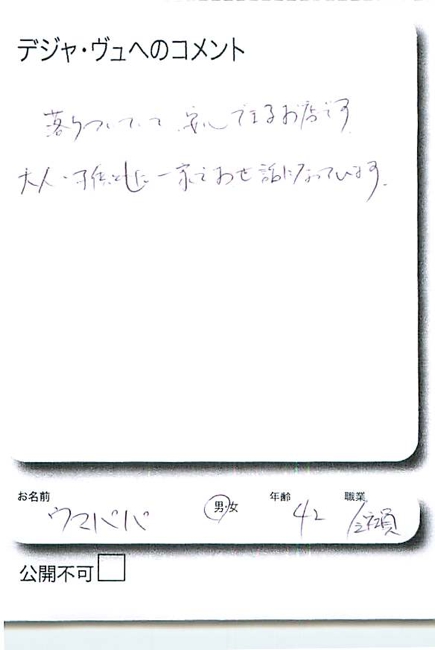 デジャ・ヴュへのコメント
落ちついていて、安心できるお店です
大人・子供ともに一家でおせ話になっています。
お名前 ウマパパ 男・女 年齢 42 職業 会社員
公開不可